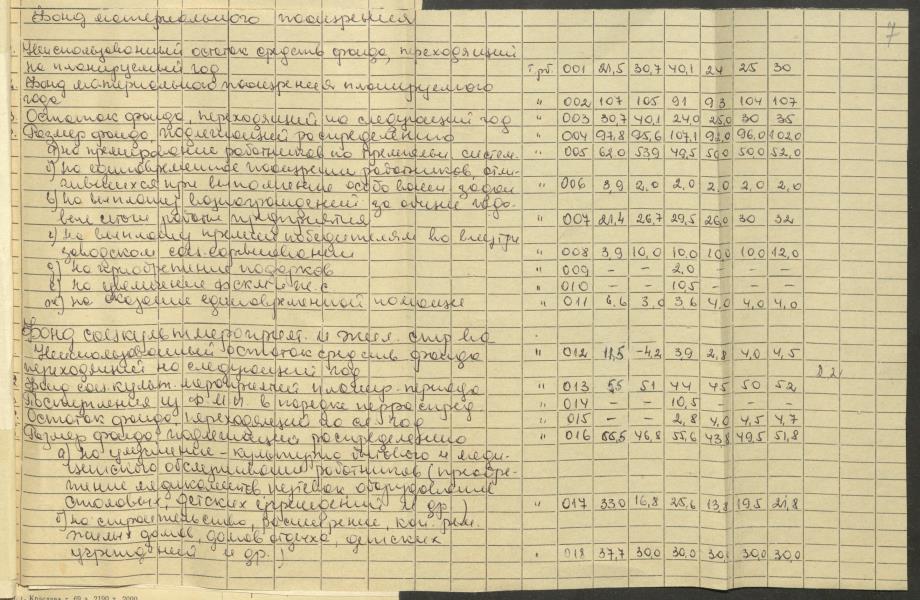 Фонд материального поощрения
7
Неиспользованный остаток средств фонда, переходящий
на планируемый год т.рб. 001 21,5 30,7 40,1 24 25 30
Фонд материального поощрения планируемого
года " 002 107 105 91 93 104 107
Остаток фонда, переходящий на следующий год " 003 30,7 40,1 24,0 25,0 30 35
Размер фонда, подлежащий распределению " 004 97,8 95,6 107,1 92,0 96,0 102,0
а) на премирование работников по премиальн. систем. " 005 62,0 53,9 49,5 50,0 50,0 52,0
б) на единовременное поощрение работников, отли-
чившихся при выполнение особо важн задан " 006 3,9 2,0 2,0 2,0 2,0 2,0
в) на выплату вознаграждений за общие годо-
вые итоги работы предприятия " 007 21,4 26,7 29,5 26,0 30 32
г) на выплату премий победителям во внутри
заводском соц. соревновании " 008 3,9 10,0 10,0 10,0 10,0 12,0
д) на приобретение подарков " 009 – – 2,0 – – –
е) на увеличение фскм и ж.с " 010 – – 10,5 – – –
ж) на оказание единовременной помощи " 011 6,6 3,0 3,6 4,0 4,0 4,0
Фонд соцкультмероприят. и жил. стр-ва
Неиспользованный остаток средств фонда " 012 11,5 -4,2 3,9 2,8 4,0 4,5
переходящий на следующий год
Фонд соц. культ. мероприятий планир. периода " 013 55 51 44 45 50 52
Поступления из Ф.М.П. в порядке перраспред " 014 – – 10,5 – – –
Остаток фонда, переходящ на сл год " 015 – – 2,8 4,0 4,5 4,7
Размер фонда, подлежащий распределению " 016 66,5 46,8 55,6 43,8 49,5 51,8
а) на улучшение культурно бытового и меди-
цинского обслуживания работников (приобре-
тение медикаментов, путевок, оборудование
столовых, детских учреждений и др.) " 017 33,0 16,8 25,6 13,8 19,5 21,8
б) на строительство, расширение, кап. рем.
жилых домов, домов отдыха, детских
учреждений и др.) " 018 37,7 30,0 30,0 30,0 30,0 30,0